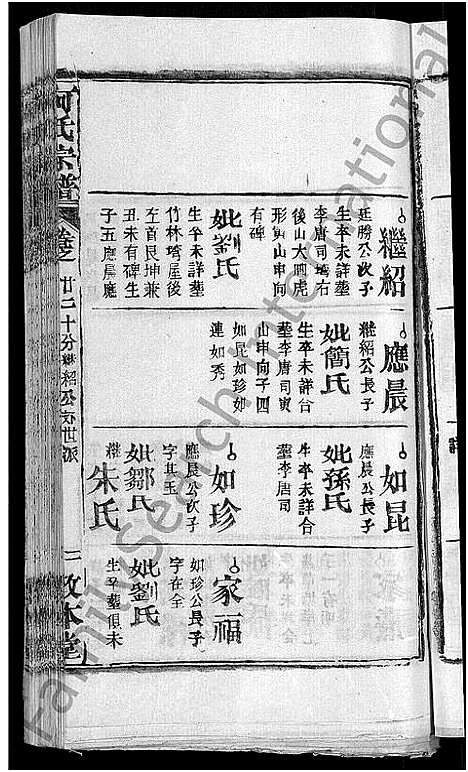 繼紹
廷勝公次子
生卒未詳葬
李唐司塆右
後山大呬虎
形寅山申向
有碑
妣劉氏
生卒未詳葬
竹林塆屋後
左首艮坤兼
丑未有碑生
子五應晨應
應晨
繼紹公長子
妣簡氏
生卒未詳合
葬李唐司寅
山申向子四
如昆如珍如
連如秀
如昆
應晨公長子
妣孫氏
生卒未詳合
葬李唐司
如珍
應晨公次子
字其玉
妣鄒氏
繼朱氏
家福
如珍公長子
字在全
妣劉氏
生卒葬俱未
何氏宗譜
卷之廿二 十分繼紹公房世派
二
敦本堂
FamilySearch International